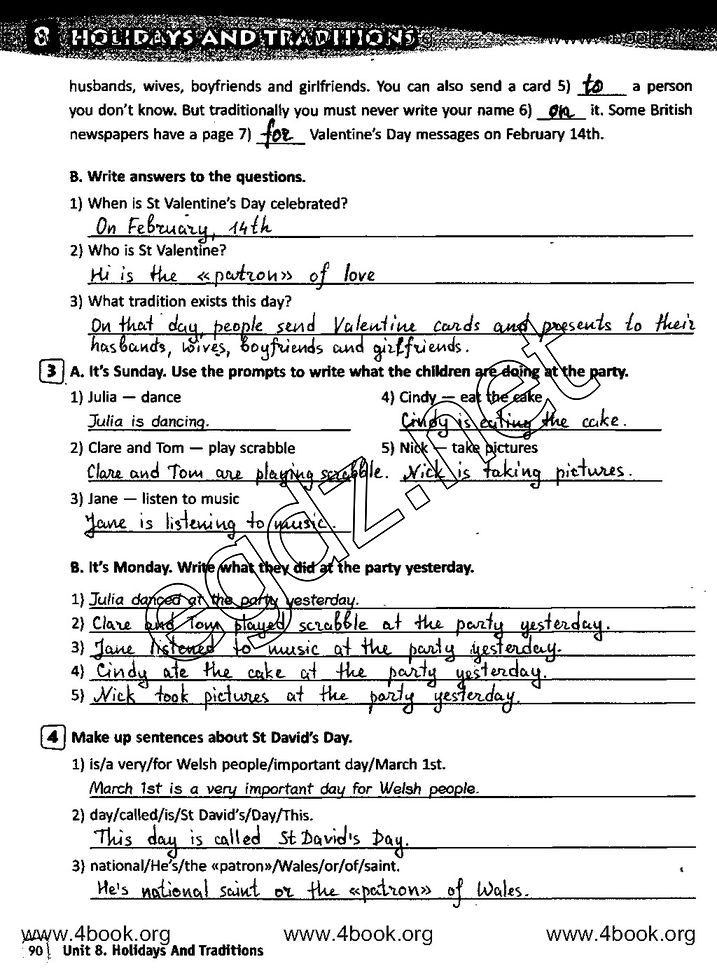 8 HOLIDAYS AND TRADITIONS
husbands, wives, boyfriends and girlfriends. You can also send a card 5) to a person
you don't know. But traditionally you must never write your name 6) on it. Some British
newspapers have a page 7) for Valentine's Day messages on February 14th.
B. Write answers to the questions.
1) When is St Valentine's Day celebrated?
On February, 14th
2) Who is St Valentine?
Hi is the «patron» of love
3) What tradition exists this day?
On that day people send Valentine cards and presents to their
hasbands, wives, boyfriends and girlfriends.
3 A. It's Sunday. Use the prompts to write what the children are doing at the party.
1) Julia — dance
Julia is dancing.
2) Clare and Tom — play scrabble
Clare and Tom are playing scrabble.
3) Jane — listen to music
Jane is listening to music.
4) Cindy — eat the cake
Cindy is eating the cake.
5) Nick — take pictures
Nick is taking pictures.
B. It's Monday. Write what they did at the party yesterday.
1) Julia danced at the party yesterday.
2) Clare and Tom played scrabble at the party yesterday.
3) Jane listened to music at the party yesterday.
4) Cindy ate the cake at the party yesterday.
5) Nick took pictures at the party yesterday.
egdz.net
4 Make up sentences about St David's Day.
1) is/a very/for Welsh people/important day/March 1st.
March 1st is a very important day for Welsh people.
2) day/called/is/St David's/Day/This.
This day is called St David's Day.
3) national/He's/the «patron»/Wales/or/of/saint.
He's national saint or the «patron» of Wales.
www.4book.org www.4book.org www.4book.org
90 Unit 8. Holidays And Traditions